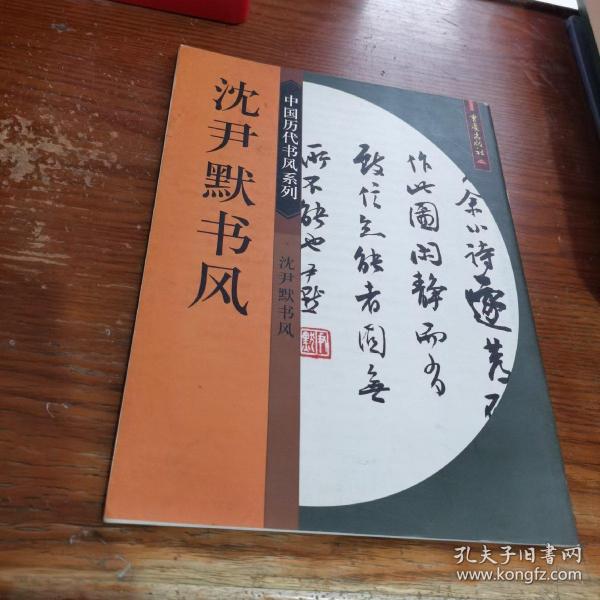 沈尹默书风
中国历代书风系列
·沈尹默书风
重庆出版社
余小诗逐荒
作此图闲静而有
致信无能者固无
所不能也尹默
尹默
孔夫子旧书网
www.kongfz.com